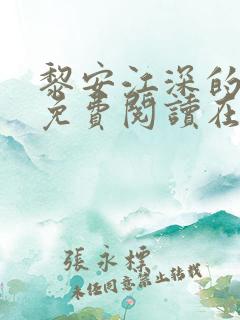 黎安江深的
免費閱讀在
張永標
未經同意禁止轉載